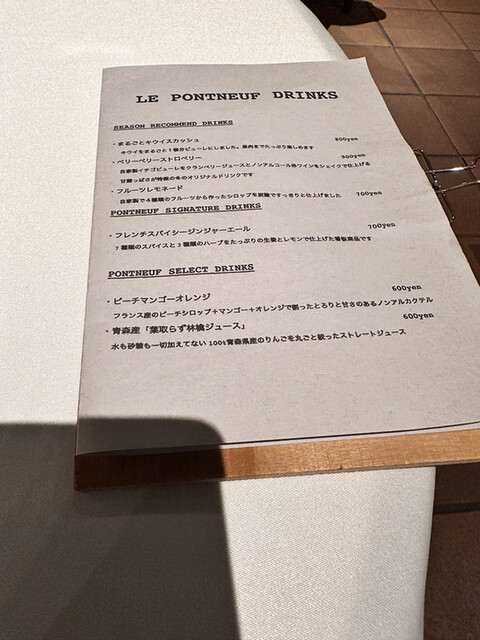 LE PONTNEUF DRINKS
SEASON RECOMMEND DRINKS
・まるごとキウイスカッシュ 800yen
キウイをまるごと1個分ピューレにしました。果肉までたっぷり楽しめます
・ベリーベリーストロベリー 900yen
自家製イチゴピューレをクランベリージュースとノンアルコール赤ワインをシェイクで仕上げる
甘酸っぱさが特徴の冬のオリジナルドリンクです
・フルーツレモネード 700yen
自家製で4種類のフルーツから作ったシロップを炭酸ですっきりと仕上げました
PONTNEUF SIGNATURE DRINKS
・フレンチスパイシージンジャーエール 700yen
7種類のスパイスと3種類のハーブをたっぷりの生姜とレモンで仕上げた看板商品です
PONTNEUF SELECT DRINKS
・ピーチマンゴーオレンジ 600yen
フランス産のピーチシロップ+マンゴー+オレンジで創ったとろりと甘さのあるノンアルカクテル
・青森産「葉取らず林檎ジュース」 600yen
水も砂糖も一切加えてない 100%青森県産のりんごを丸ごと絞ったストレートジュース